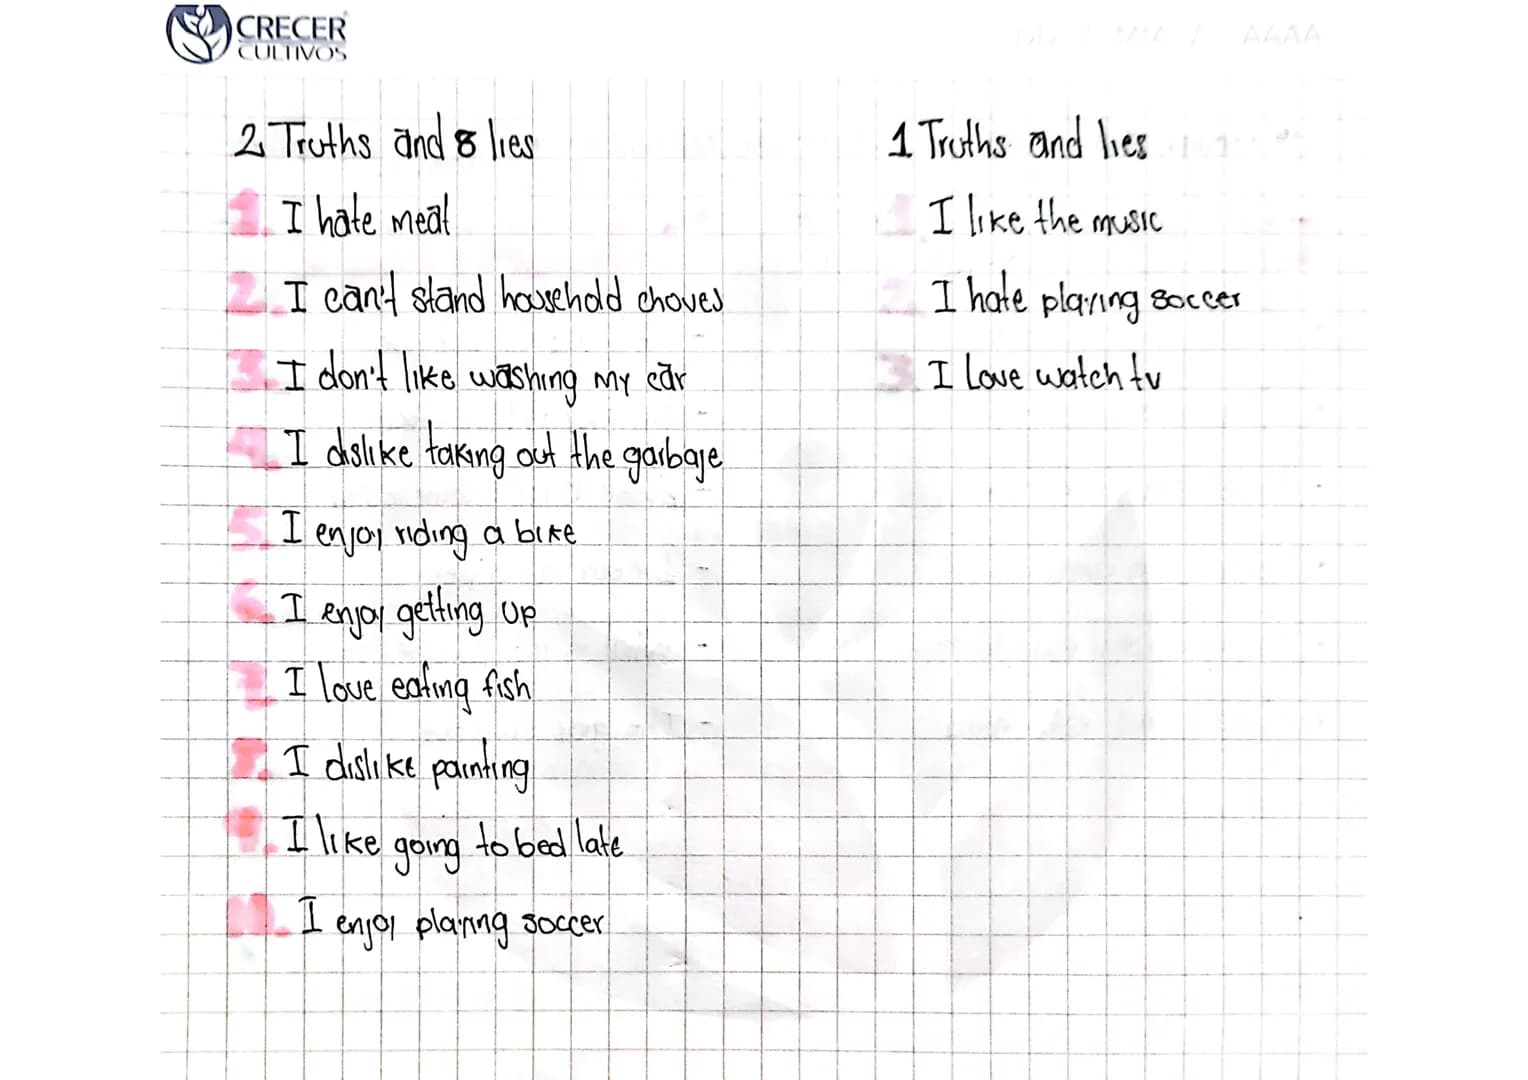 CRECER
CULTIVOS
AAAA
2 Truths and 8 lies
1. I hate meat
2. I can't stand household choves
3. I don't like washing my car
4. I dislike taking out the garbage
5. I enjoy riding a bike
6. I enjoy getting up
7. I love eating fish
8. I dislike painting
9. I like going to bed late
10. I enjoy playing soccer
1 Truths and lies
1 I like the music
2. I hate playing soccer
3 I Love watch tv